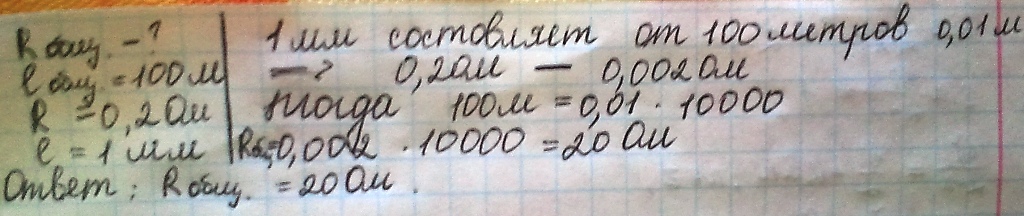 R общ. - ? | 1 мм состовляет от 100 метров 0,01м
l общ. = 100 м | —> 0,2 Ом — 0,002 Ом
R = 0,2 Ом | тогда 100м = 0,01 · 10000
l = 1 мм | Rоб.=0,002 · 10000 = 20 Ом
Ответ: R общ. = 20 Ом.